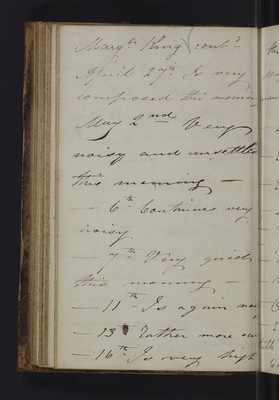 Margt King (contd
April 29th Is very
composed this morning
May 2nd Very
noisy and unsettled
this morning —
— 6th Continues very
noisy
— 7th Very quiet
this morning —
— 11th Is again
— 13 Rather more
— 16th Is very high